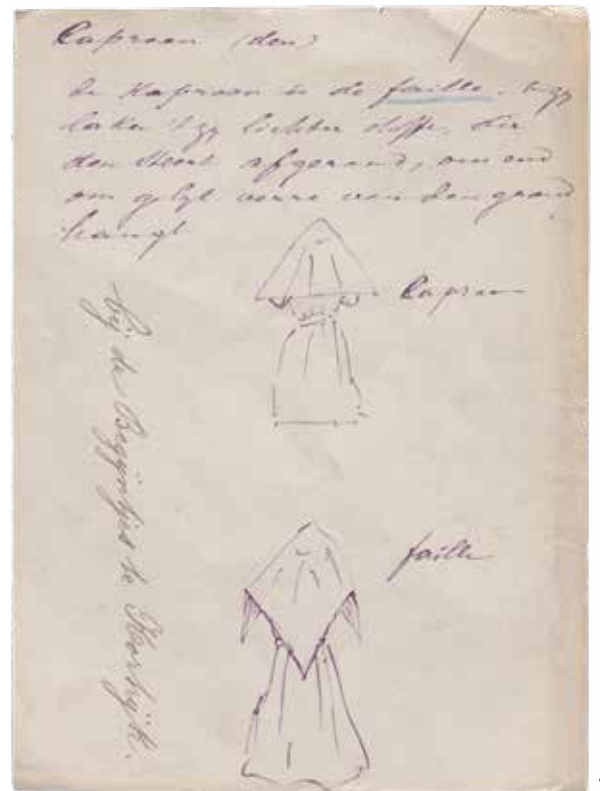 Capraan (den)
de Kapraan is de faille.
laken 't zy lichter stoffe, die
den steert afgerond, en
om gelyk verre van den grond
hangt
Capraan
faille
bij de Begijntjes te Kortrijk.